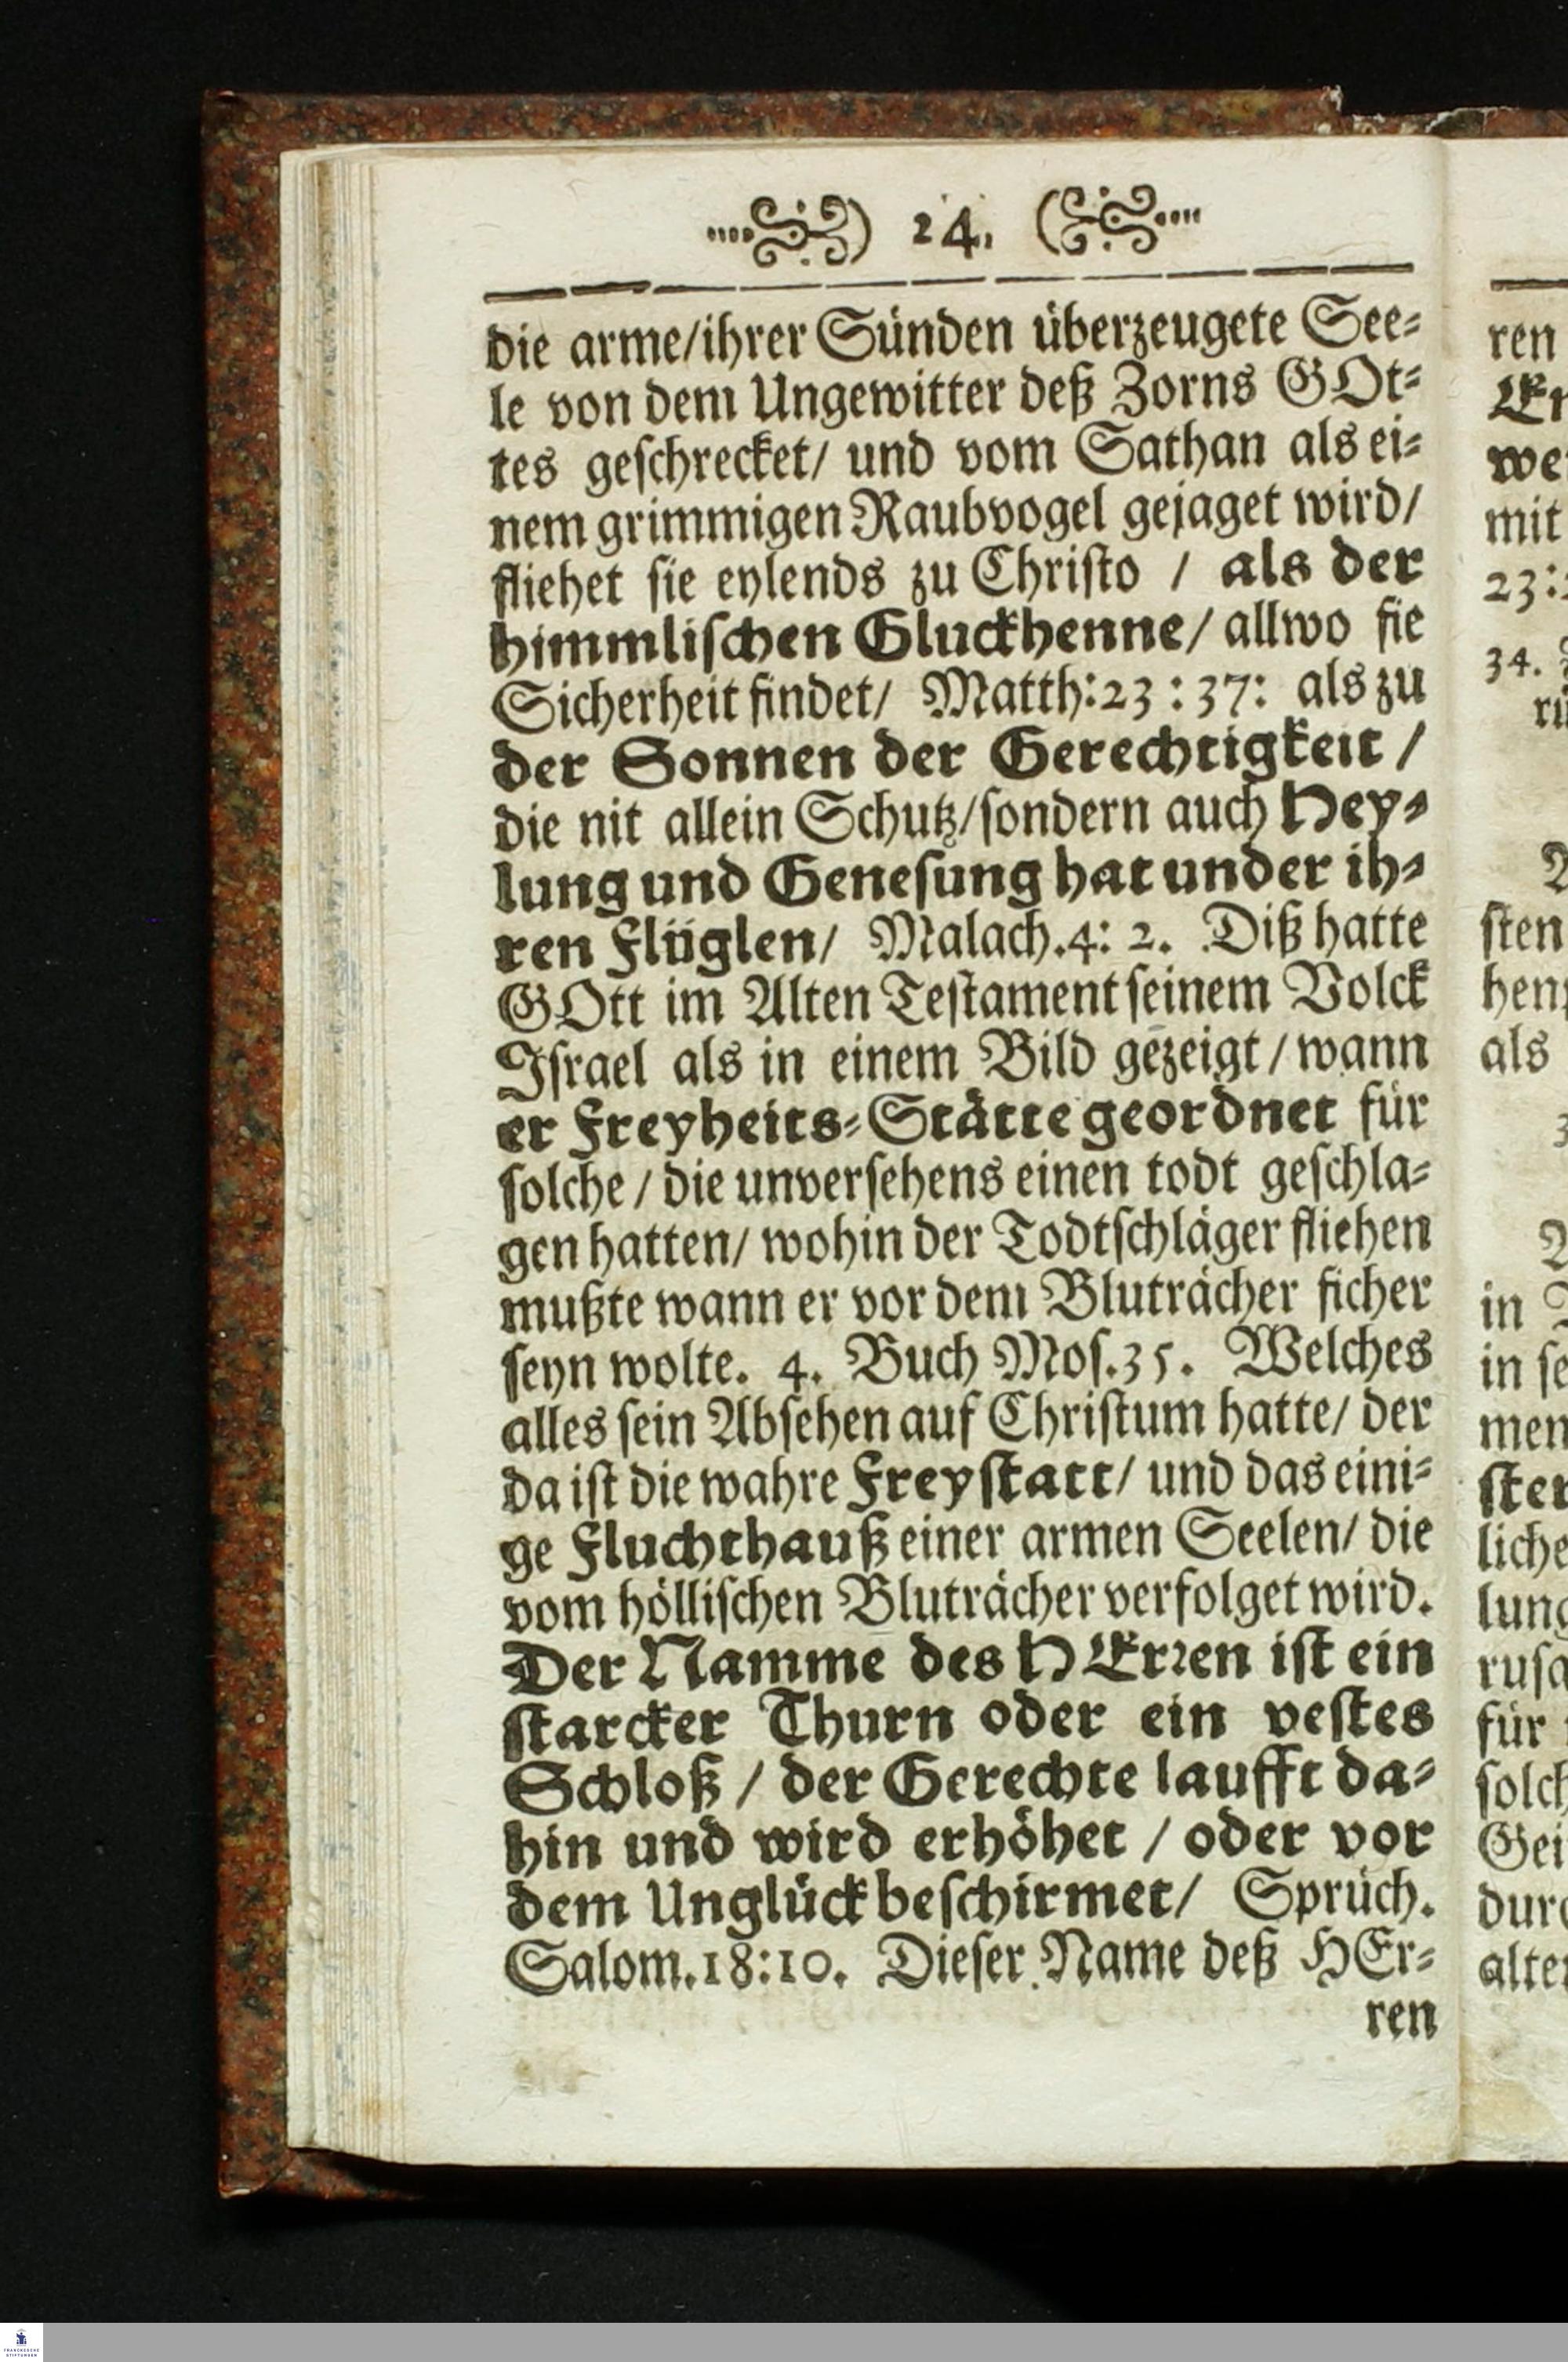 24.
die arme/ihrer Sünden überzeugete See-
le von dem Ungewitter deß Zorns GOt-
tes geschrecket/ und vom Sathan als ei-
nem grimmigen Raubvogel gejaget wird/
fliehet sie eylends zu Christo / als der
himmlischen Gluckhenne/ allwo sie
Sicherheit findet/ Matth:23:37: als zu
der Sonnen der Gerechtigkeit /
die nit allein Schutz/sondern auch Hey-
lung und Genesung hat under ih-
ren Flüglen/ Malach.4: 2. Diß hatte
GOtt im Alten Testament seinem Volck
Israel als in einem Bild gezeigt / wann
er Freyheits-Stätte geordnet für
solche / die unversehens einen todt geschla-
gen hatten/ wohin der Todtschläger fliehen
mußte wann er vor dem Bluträcher sicher
seyn wolte. 4. Buch Mos.35. Welches
alles sein Absehen auf Christum hatte/ der
da ist die wahre Freystatt/ und das eini-
ge Fluchthauß einer armen Seelen/ die
vom höllischen Bluträcher verfolget wird.
Der Namme des HErren ist ein
starcker Thurn oder ein vestes
Schloß / der Gerechte laufft da-
hin und wird erhöhet / oder vor
dem Unglück beschirmet/ Sprüch.
Salom.18:10. Dieser Name deß HEr-
ren
ren
we
mit
23:
34.
sten
hen
als
in
in se
men
liche
lung
für
solch
Gei
FRANCKESCHE
STIFTUNGEN